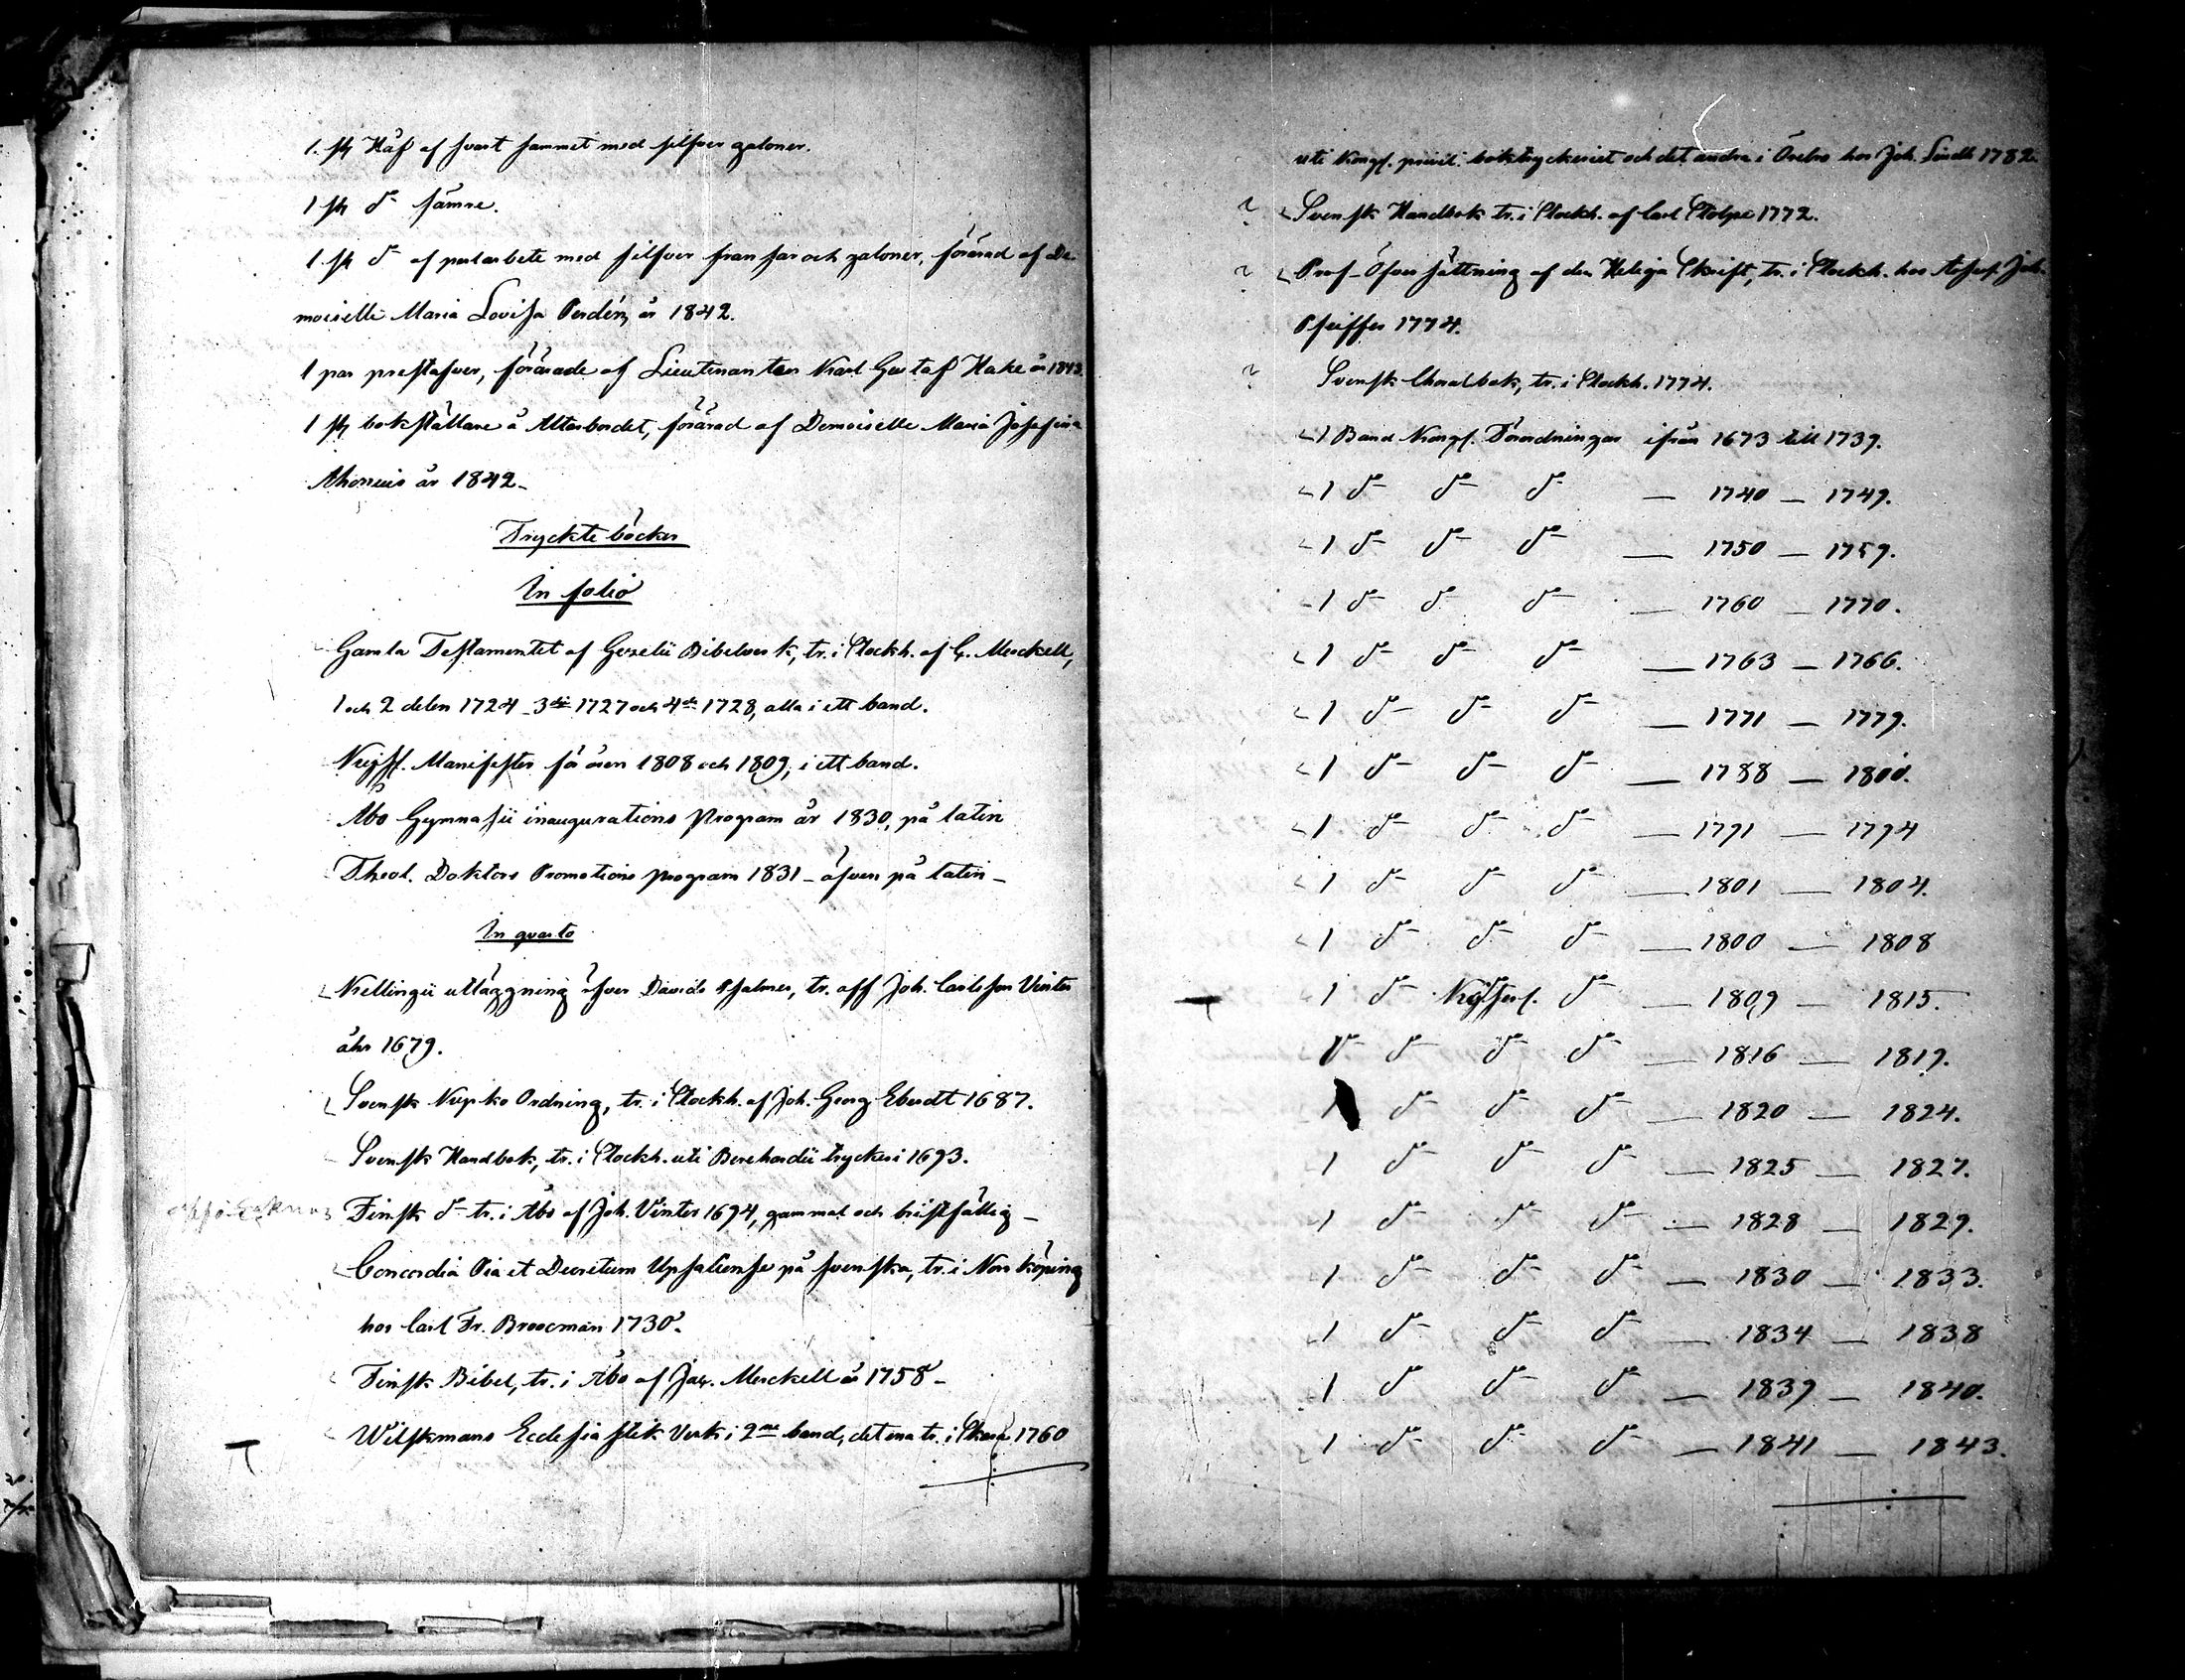 1. st. Håf af svart sammet med silfver galoner.
1 st. do sämre.
1 st. do af perlarbete med silfver fransar och galoner, förärad af De-
moiselle Maria Lovisa Perdén, år 1842.
1 par prestafver, förärade af Lieutenanten Karl Gustaf Hake år 1843.
1 st. bokställare å Altarbordet, förärad af Demoiselle Maria Josefina
år 1842.
Tryckte böcker
In folio
Gamla Testamentet af Gezelii Bibelverk, tr. i Stockh. af G. Merckell,
1 och 2 delen 1724 - 3die 1727 och 4de 1728, alla i ett band.
Manifester för åren 1808 och 1809, i ett band.
Åbo Gymnasii inaugurations Program år 1830, på latin
Theol. Doktors Promotions program 1831 - äfven på latin -
In quarto
Krellingii utläggning öfver Davids Psalmer, tr. aff Joh. Carlsson Vinter
åhr 1679.
Svensk Kyrko Ordning, tr. i Stockh. af Joh. Georg Eberdt 1687.
Svensk Handbok, tr. i Stockh. uti Burchardii tryckeri 1693.
Finsk do tr. i Åbo af Joh. Vinter 1694, gammal och bristfällig -
Concordia Pia et Decretum Upsaliense på svenska, tr. i Norrköping
hos Carl Fr. Broocman 1730.
Finsk Bibel, tr. i Åbo af Jac. Merckell år 1758 -
Wilskmans Ecclesiastik Verk i 2ne band, det ena tr. i Skara 1760
uti Kongl. privil. boktryckeriet och det andra i Örebro hos Joh. Lindh 1782.
? Svensk Handbok tr. i Stockh. af Carl Stolpe 1772.
? Prof-Öfversättning af den Heliga Skrift, tr. i Stockh. hos Assess. Joh.
Pfeiffer 1774.
? Svensk Choralbok, tr. i Stockh. 1774.
1 Band Kongl. Förordningar ifrån 1673 till 1739.
1 do do do — 1740 — 1749.
1 do do do — 1750 — 1759.
1 do do do — 1760 — 1770.
1 do do do — 1763 — 1766.
1 do do do — 1771 — 1779.
1 do do do — 1788 — 1800.
1 do do do — 1791 — 1794
1 do do do — 1801 — 1804.
1 do do do — 1800 — 1808
1 do Kejserl. do — 1809 — 1815.
1 do do do — 1816 — 1819.
1 do do do — 1820 — 1824.
1 do do do — 1825 — 1827.
1 do do do — 1828 — 1829.
1 do do do — 1830 — 1833.
1 do do do — 1834 — 1838
1 do do do — 1839 — 1840.
1 do do do — 1841 — 1843.